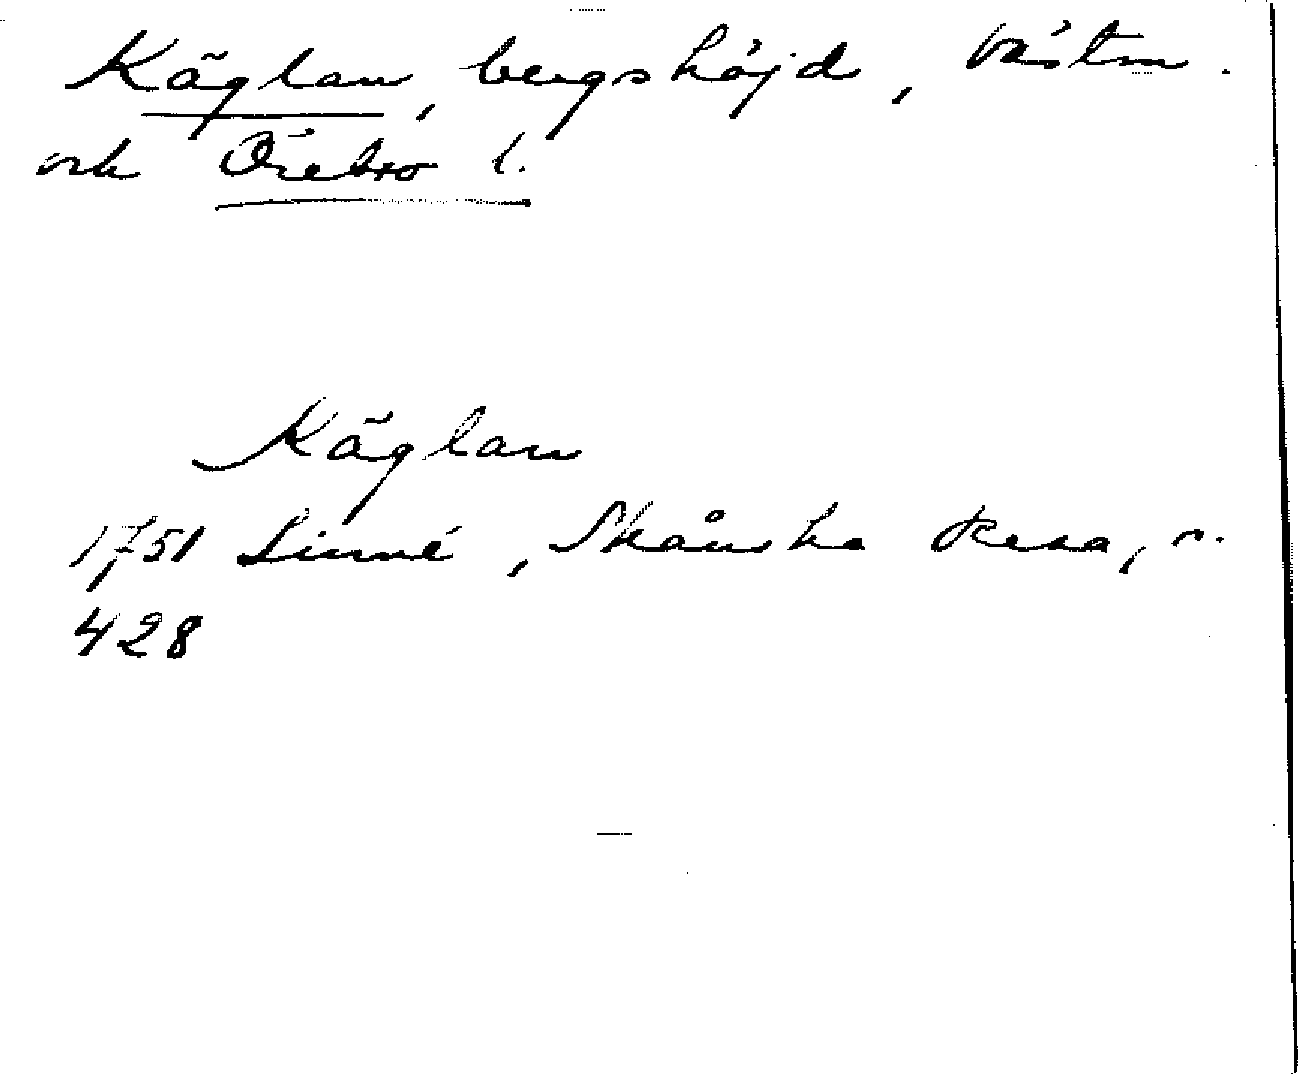 Käglan, bergshöjd, Västm.
och Örebro l.
Käglan
1751 Linné, Skånska Resa, s.
428